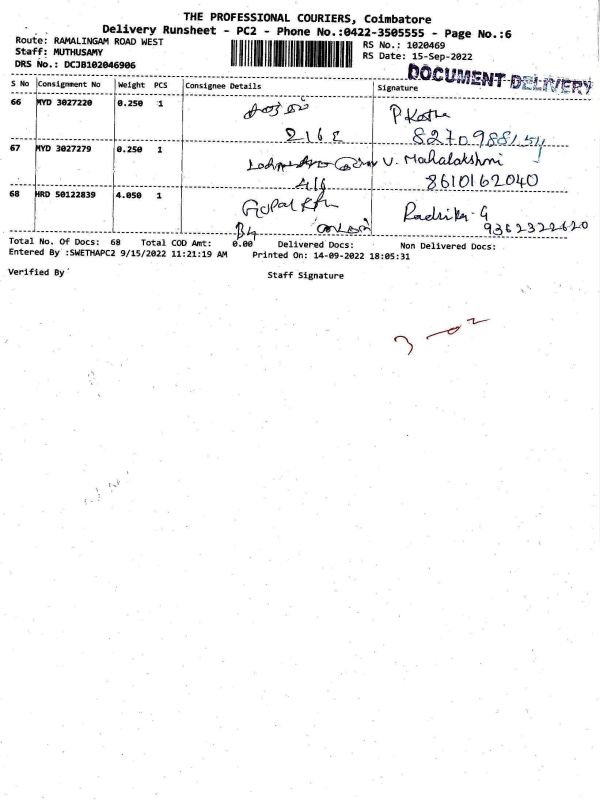 THE PROFESSIONAL COURIERS, Coimbatore
Delivery Runsheet - PC2 - Phone No.:0422-3505555 - Page No.:6
Route: RAMALINGAM ROAD WEST
RS No.: 1020469
Staff: MUTHUSAMY
RS Date: 15-Sep-2022
DRS No.: DCJB102046906
DOCUMENT DELIVERY
S No Consignment No Weight PCS Consignee Details Signature
66 MYD 3027220 0.250 1
67 MYD 3027279 0.250 1 V. Mahalakshmi
8610162040
68 HRD 50122839 4.050 1 Gopal Radhika G
9362322620
Total No. Of Docs: 68 Total COD Amt: 0.00 Delivered Docs: Non Delivered Docs:
Entered By :SWETHAPC2 9/15/2022 11:21:19 AM Printed On: 14-09-2022 18:05:31
Verified By Staff Signature